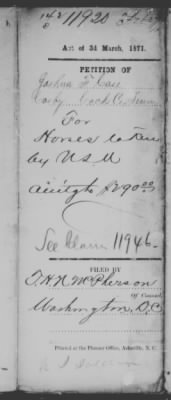 11920
Act of 3d March, 1871.
PETITION OF
Joshua F
Cosby Cocke Co Tenn
For
Horses taken
by U S A
390.00
See Claim 11946.
FILED BY
T. H. N. McPherson
Of Counsel,
Washington, D.C.
Printed at the Pioneer Office, Asheville, N. C.